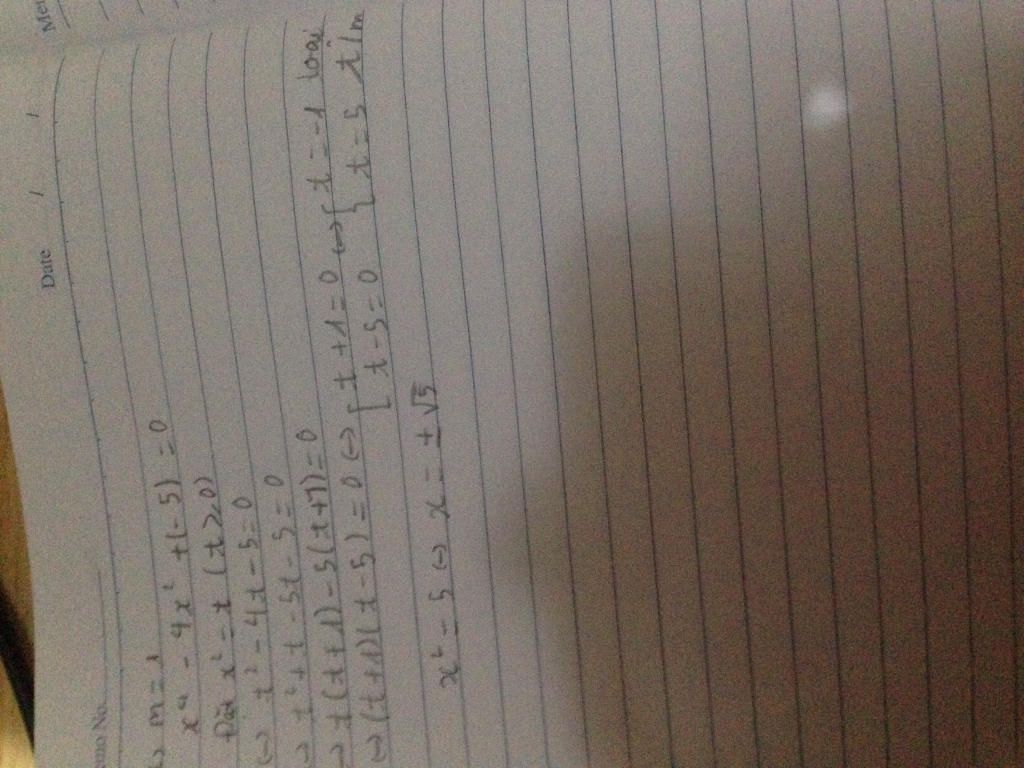 Date / /
m = 1
x⁴ - 4x² + (-5) = 0
Đặt x² = t (t ≥ 0)
(=) t² - 4t - 5 = 0
t² + t - 5t - 5 = 0
t(t+1) - 5(t+1) = 0
(=) (t+1)(t-5) = 0 (=) [ t + 1 = 0 (=) [ t = -1 loại
[ t - 5 = 0 [ t = 5 t/m
x² = 5 (=) x = ±√5